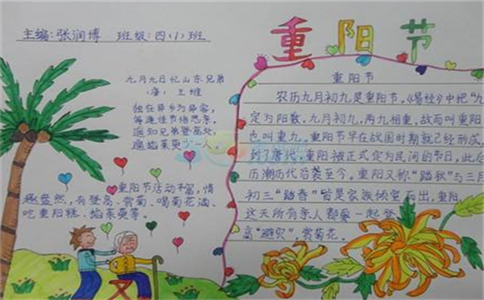 主编:张润博 班级:四(1)班
重阳节
九月九日忆山东兄弟
(唐) 王维
独在异乡为异客,
每逢佳节倍思亲。
遥知兄弟登高处,
遍插茱萸少一人
重阳节活动丰富,情
趣盎然,有登高、赏菊、喝菊花酒、
吃重阳糕、插茱萸等。
重阳节
农历九月初九是重阳节。《易经》中把"九"
定为阳数,九月初九,两九相重,故而叫重阳
也叫重九。重阳节早在战国时期就已经形成,
到了唐代,重阳被正式定为民间的节日,此后
历朝历代沿袭至今。重阳又称"踏秋"与三月
初三"踏春"皆是家族倾室而出,重阳
这天所有亲人都要一起登
高"避灾",赏菊花。